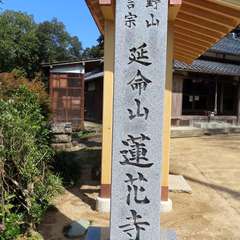 野山
言宗
延命山 蓮花寺